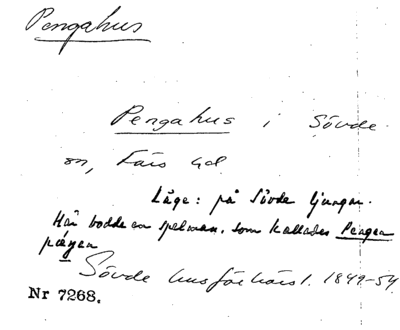 Pengahus
Pengahus i Sövde
sn, Färs hd.
Läge: på Sövde ljungar.
Här bodde en spelman, som kallades Pengen
pægen
Sövde husförhörsl. 1849-54
Nr 7268.